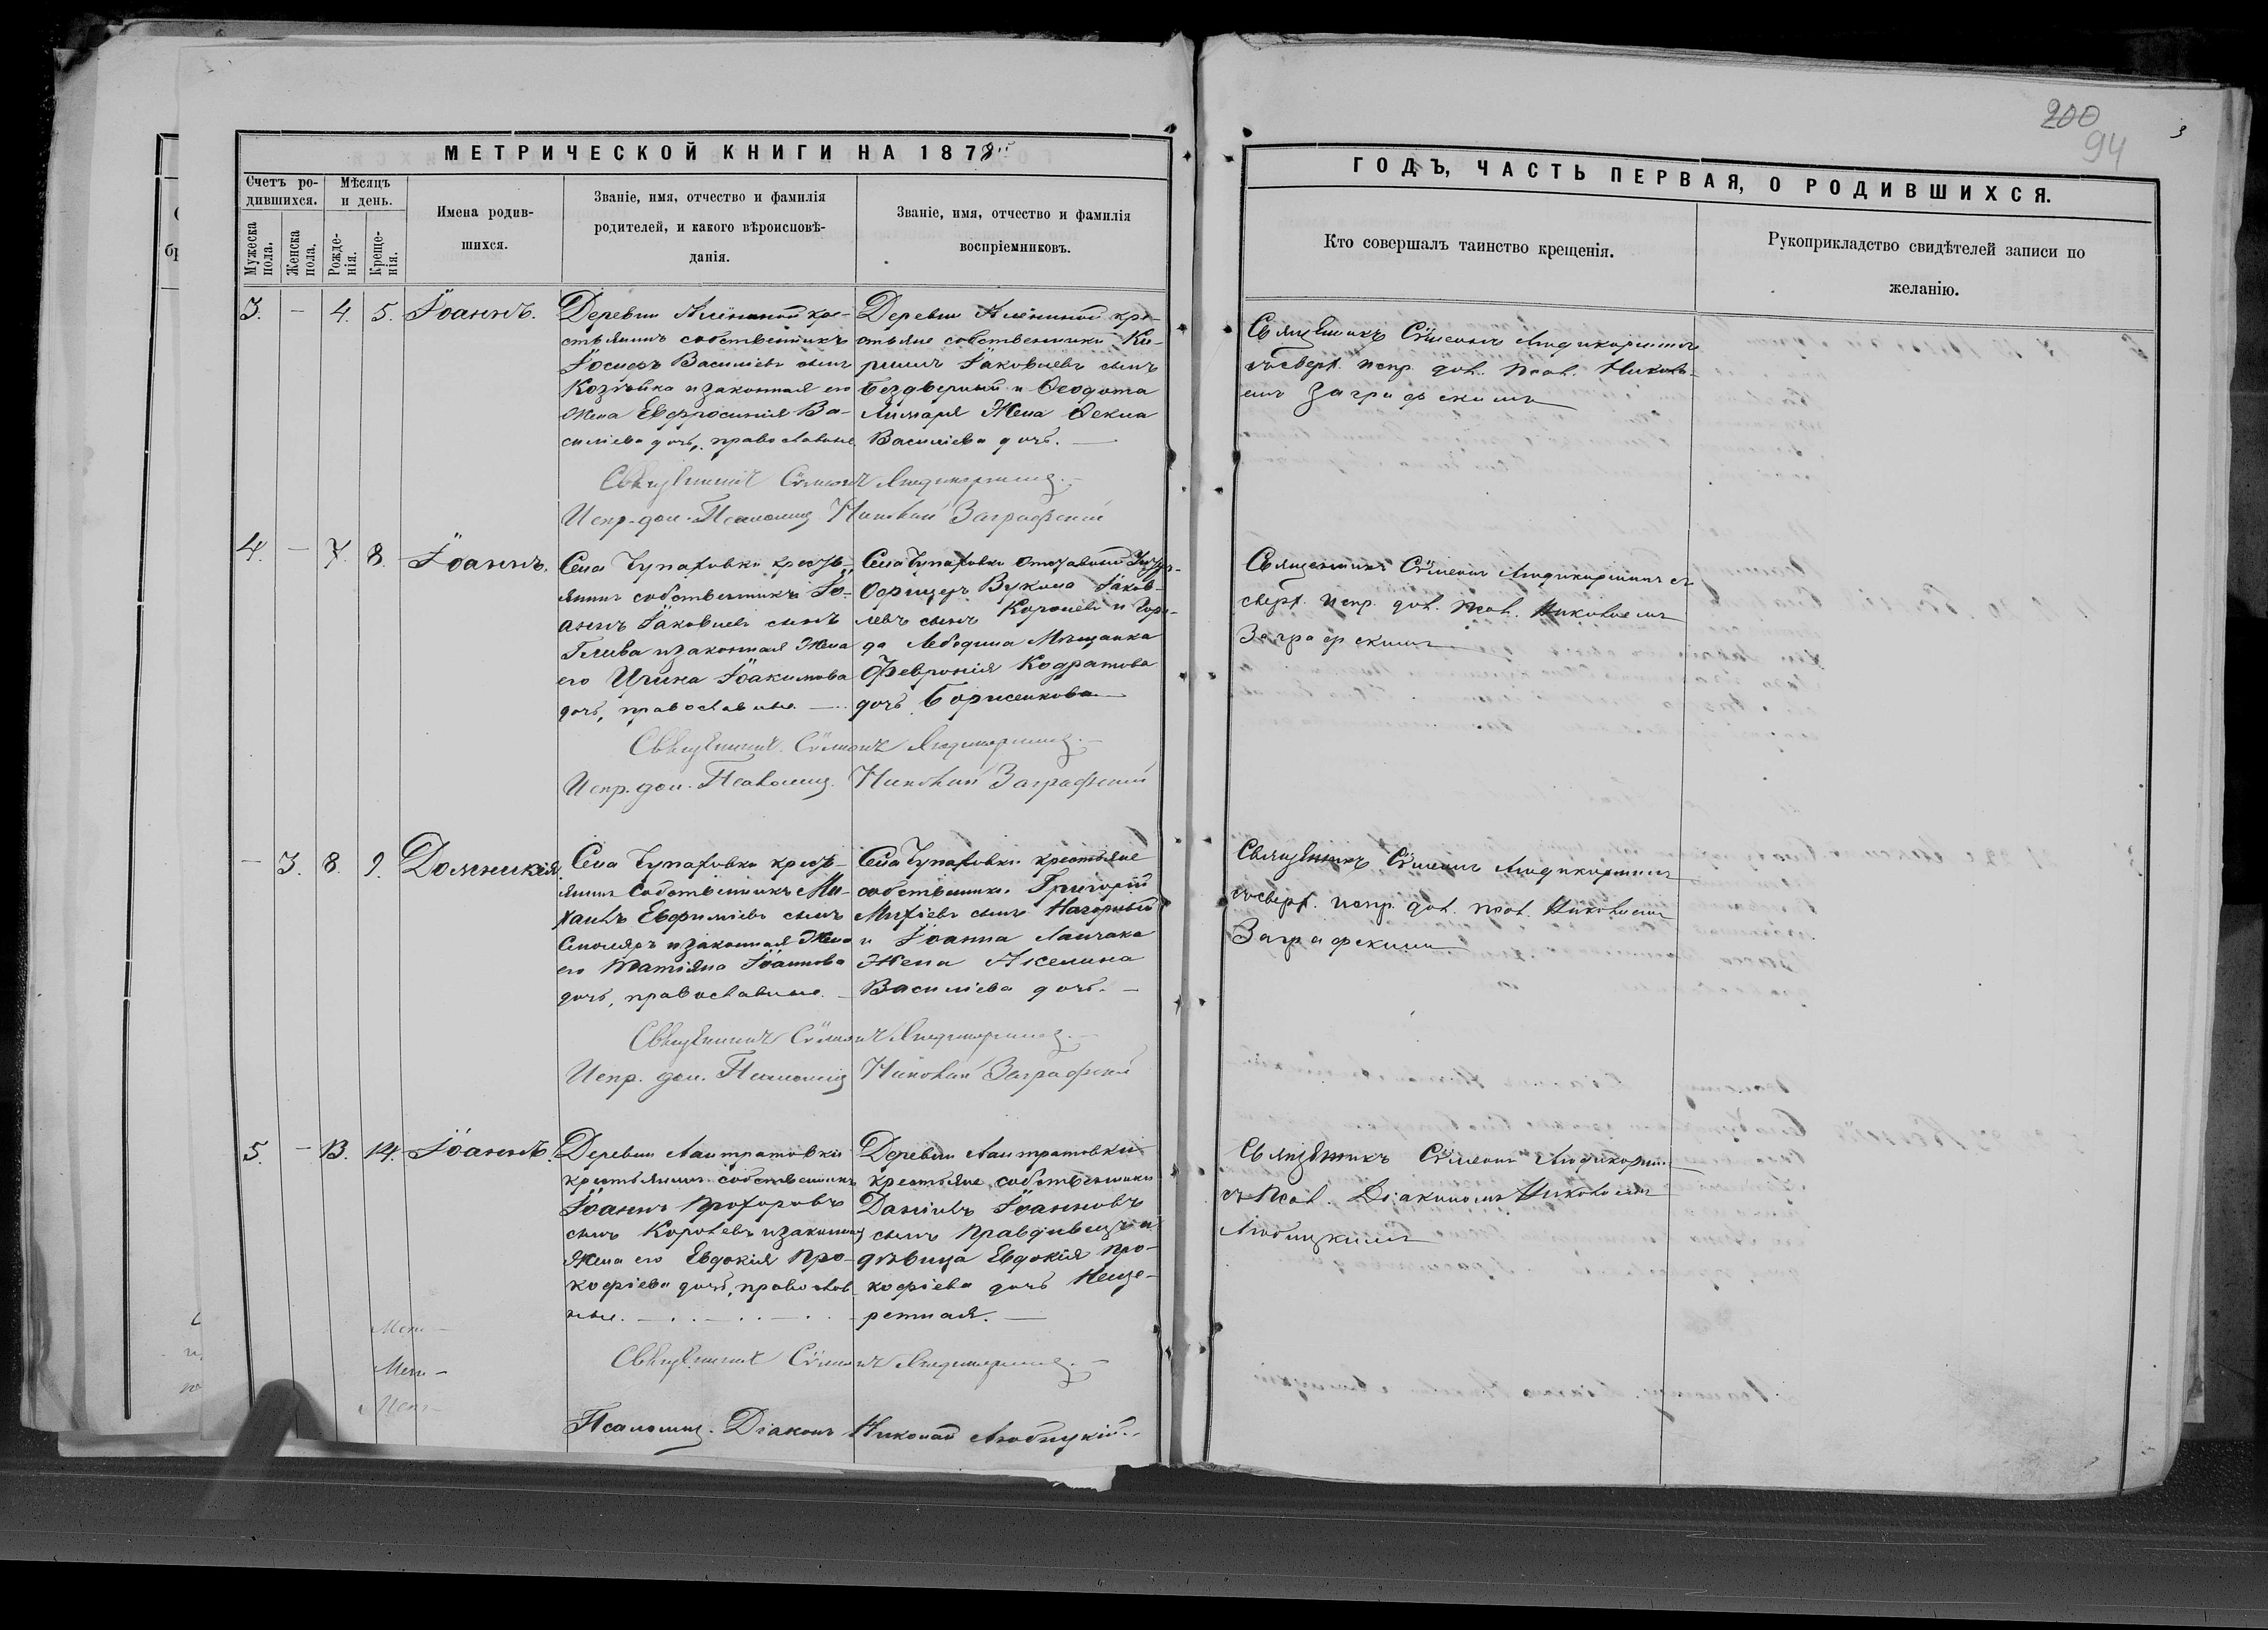 200
94
3
МЕТРИЧЕСКОЙ КНИГИ НА 1878
ГОДЪ, ЧАСТЬ ПЕРВАЯ, О РОДИВШИХСЯ.
Счетъ ро-
дившихся.
Мужеска
пола.
Женска
пола.
Мѣсяцъ
и день.
Рожде-
нія.
Креще-
нія.
Имена родив-
шихся.
Званіе, имя, отчество и фамилія
родителей, и какого вѣроисповѣ-
данія.
Званіе, имя, отчество и фамилія
воспріемниковъ.
Кто совершалъ таинство крещенія.
Рукоприкладство свидѣтелей записи по
желанію.
3. — 4. 5. Іоаннъ.
Деревни Алениной кре-
стьянинъ собственникъ
Іосифъ Василіевъ сынъ
и законная его
жена Евфросинія Ва-
силіева дочь, православные
Деревни Алениной кре-
стьяне собственники Ки-
риллъ Іаковлевъ сынъ
Бездверный и Ѳеодота
Лимаря жена Ѳекла
Василіева дочь. —
Священникъ Сѵмеонъ
съ испр. дол. псал. Никола-
емъ Заграфскимъ
Священникъ Сѵмеонъ
Испр. дол. Псаломщ. Николай Заграфскій
4. — 7. 8. Іоаннъ.
Села Чупаховки кресть-
янинъ собственникъ Іо-
аннъ Іаковлевъ сынъ
и законная жена
его Ирина Іоакимова
дочь, православные. —
Села Чупаховки отставной Унтеръ-
Офицеръ Вукола Іаков-
левъ сынъ Королевъ и Горо-
да Лебедина Мѣщанка
Февронія Кодратова
дочь Борисенкова —
Священникъ Сѵмеонъ
испр. дол. псал. Николаемъ
Заграфскимъ
Священникъ Сѵмеонъ
Испр. дол. Псаломщ. Николай Заграфскій
— 3. 8. 9. Домникія.
Села Чупаховки кресть-
янинъ собственникъ Ми-
хаилъ Евфиміевъ сынъ
Столяръ и законная жена
его Татіяна Іоаннова
дочь, православные. —
Села Чупаховки крестьяне
собственники Григорій
Михіевъ сынъ Нагорный
и Іоанна
жена Акелина
Василіева дочь. —
Священникъ Сѵмеонъ
испр. дол. псал. Николаемъ
Заграфскимъ
Священникъ Сѵмеонъ
Испр. дол. Псаломщ Николай Заграфскій
5. — 13. 14. Іоаннъ.
Деревни Лантратовки
крестьянинъ собственникъ
Іоаннъ Прохоровъ
сынъ Королевъ и законная
жена его Евдокія Про-
кофіева дочь, православ-
ные.
Деревни Лантратовки
крестьяне собственники
Даніилъ Іоанновъ
сынъ Правдивецъ и
дѣвица Евдокія Про-
кофіева дочь Неще-
ретная. —
Священникъ Сѵмеонъ
съ псал. Діакономъ Николаемъ
Любицкимъ
Священникъ Сѵмеонъ
Псаломщ. Діаконъ Николай Любицкій.